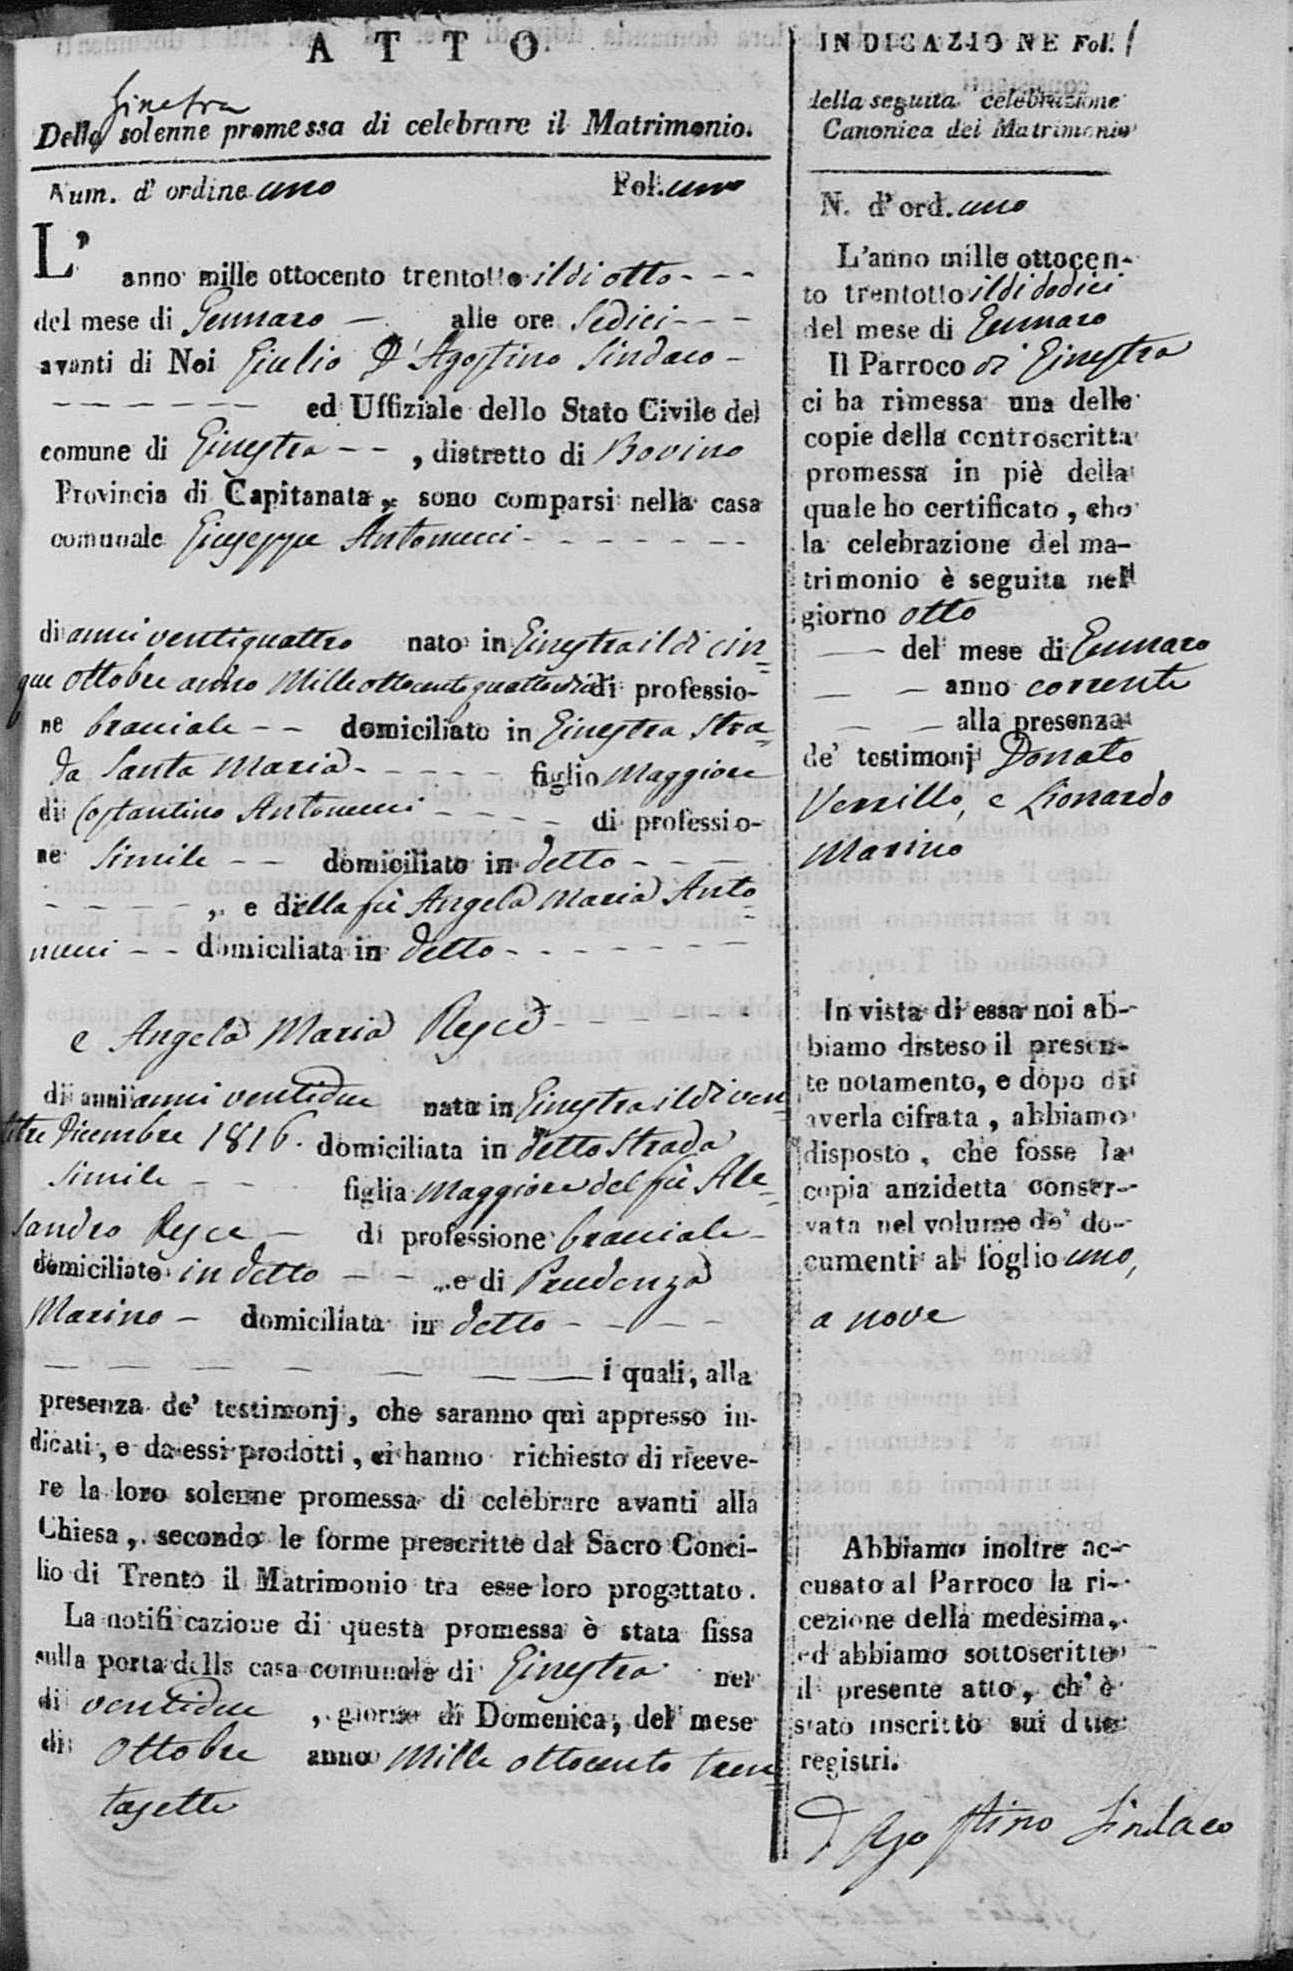 ATTO
Ginestra
Della solenne promessa di celebrare il Matrimonio.
Num. d' ordine uno Fol. uno
L'
anno mille ottocento trentotto il di otto - - -
del mese di Gennaro — alle ore Sedici - - -
avanti di Noi Giulio D'Agostino Sindaco -
- - - - - - ed Uffiziale dello Stato Civile del
comune di Ginestra - - , distretto di Bovino
Provincia di Capitanata, sono comparsi nella casa
comunale Giuseppe Antonucci - - - - - - -
di anni ventiquattro nato in Ginestra il di cin=
que ottobre anno Mille ottocento quattordici di professio-
ne bracciale - - domiciliato in Ginestra Stra=
da Santa Maria - - - - - figlio Maggiore
di Costantino Antonucci - - - - - di professio-
ne Simile - - domiciliato in detto - - - -
- - - - - , e di della fù Angela Maria Anto=
nucci - - domiciliata in detto - - - - - - -
e Angela Maria Resce - - - - - -
di anni anni ventidue nata in Ginestra il di ven=
titre Dicembre 1816. domiciliata in detto Strada
Simile - - - figlia Maggiore del fù Ale=
sandro Resce — di professione bracciale -
domiciliato in detto - - - e di Prudenza
Marino — domiciliata in detto - - - - -
— — — — — — — i quali, alla
presenza de' testimonj, che saranno quì appresso in-
dicati, e da essi prodotti, ci hanno richiesto di riceve-
re la loro solenne promessa di celebrare avanti alla
Chiesa, secondo le forme prescritte dal Sacro Conci-
lio di Trento il Matrimonio tra esse loro progettato.
La notificazione di questa promessa è stata fissa
sulla porta della casa comunale di Ginestra nel
di ventidue , giorno di Domenica, del mese
di Ottobre anno Mille ottocento tren=
tasette
INDICAZIONE Fol. 1
della seguita celebrazione
Canonica del Matrimonio
N. d' ord. uno
L'anno mille ottocen-
to trentotto il di dodici
del mese di Gennaro
Il Parroco di Ginestra
ci ha rimessa una delle
copie della controscritta
promessa in piè della
quale ho certificato, che
la celebrazione del ma-
trimonio è seguita nel
giorno otto
— del mese di Gennaro
— — anno corrente
— — alla presenza
de' testimonj Donato
Verrillo, e Lionardo
Marino
In vista di essa noi ab-
biamo disteso il presen-
te notamento, e dopo di
averla cifrata, abbiamo
disposto, che fosse la
copia anzidetta conser-
vata nel volume de' do-
cumenti al foglio uno,
a nove
Abbiamo inoltre ac-
cusato al Parroco la ri-
cezione della medesima,
ed abbiamo sottoscritto
il presente atto, ch' è
stato inscritto sui due
registri.
D'Agostino Sindaco